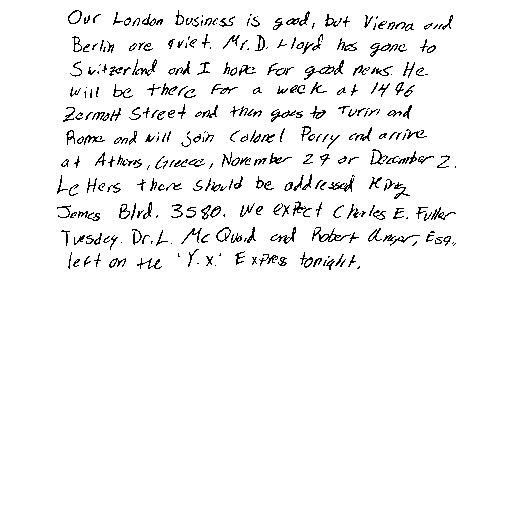 Our London business is good, but Vienna and
Berlin are quiet. Mr. D. Lloyd has gone to
Switzerland and I hope for good news. He
will be there for a week at 1496
Zermott Street and then goes to Turin and
Rome and will join Colonel Parry and arrive
at Athens, Greece, November 29 or December 2.
Letters there should be addressed King
James Blvd. 3580. We expect Charles E. Fuller
Tuesday. Dr. L. McQuaid and Robert Unger, Esq.,
left on the 'Y.X.' Express tonight.